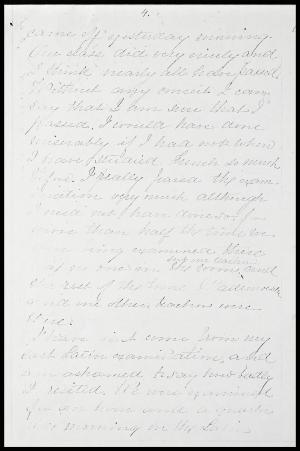 4.
came off yesterday morning.
Our class did very nicely and
I think nearly all have passed.
Without any conceit I can
say that I am sure that I
passed. I would have done
miserably if I had not when
I have studied French so much
I really passed the exam-
ination very much although
I need not have done so for
more than half the time we
were being examined there
was no one in the room, and
the rest of the time Mademoiselle
and one other teacher were
there.
I have just come from my
last Latin examination, and
am ashamed to say how badly
I recited. We were examined
for an hour and a quarter
this morning in the Latin